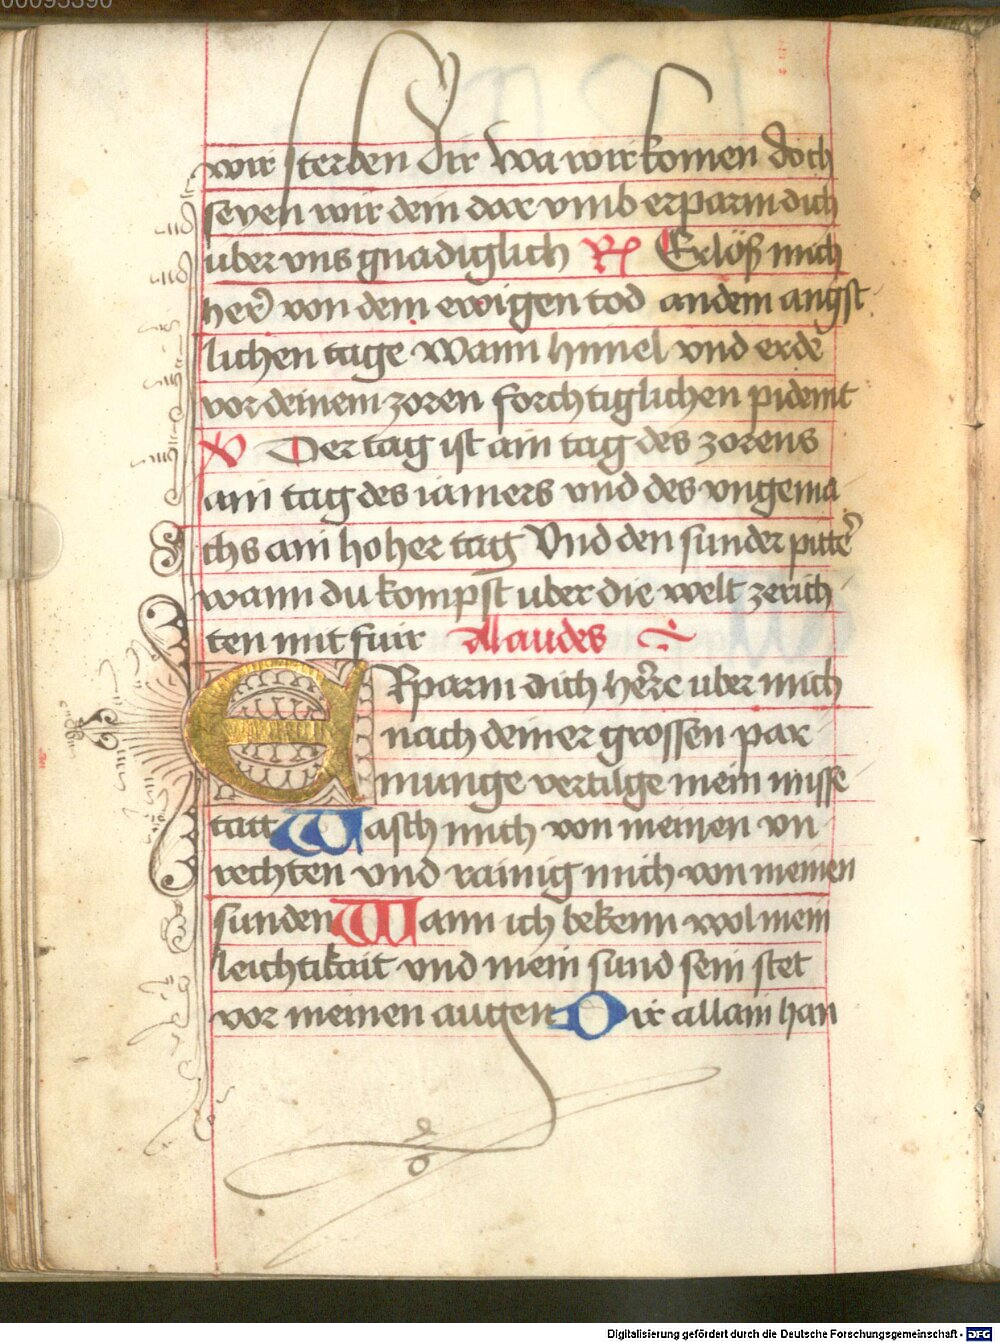 00095390
wir sterben dir wa wir komen doch
seyen wir dein dar vmb erparm dich
uber vns gnadiglich R Erlöß mich
her von dem ewigen tod an dem angst
lichen tage Wann himel vnd erde
vor deinem zoren forchtiglichen pident
V Der tag ist ain tag des zorens
ain tag des iamers vnd des vngema
chs ain hoher tag Vnd den sunder pitter
wann du kompst uber die welt ze rich
ten mit fuir Laudes
ERparm dich herre uber mich
nach deiner grossen par
munge vertilge mein misse
tatt Wasch mich von meinen vn
rechten vnd rainig mich von meinen
sunden Wann ich bekenn wol mein
leichtikait vnd mein sund sein stet
vor meinen augen Dir allain han
Digitalisierung gefördert durch die Deutsche Forschungsgemeinschaft - DFG